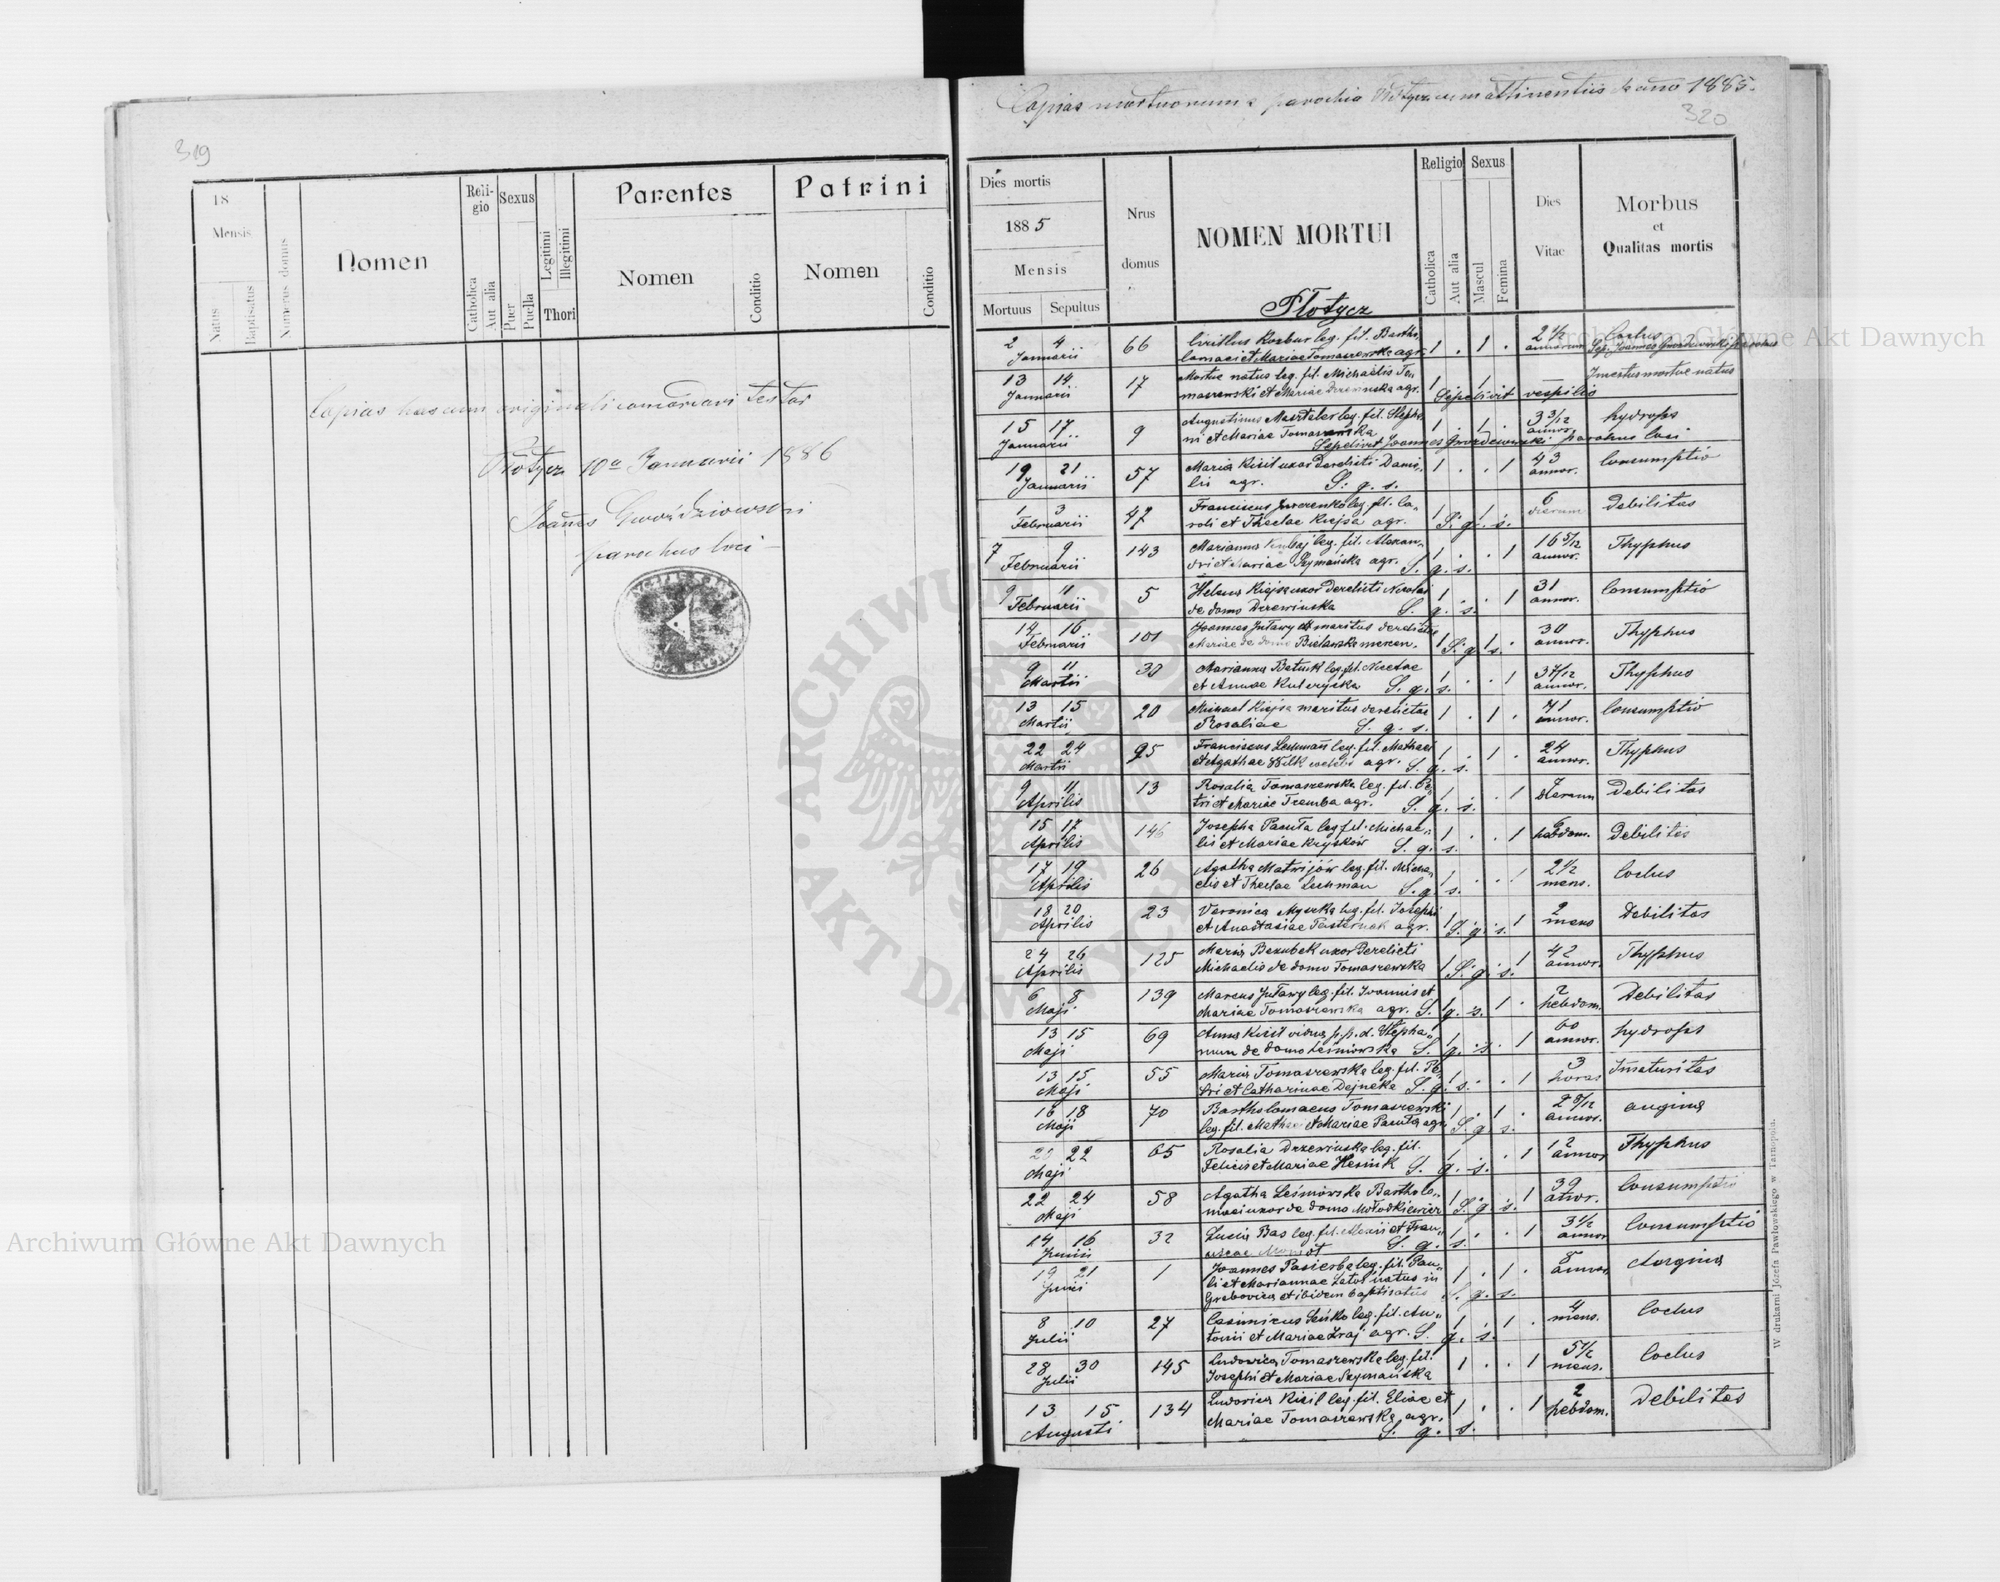 319
18
Mensis
Natus
Baptisatus
Numerus domus
Nomen
Reli-
gio
Catholica
Aut alia
Sexus
Puer
Puella
Legitimi
Illegitimi
Thori
Parentes
Nomen
Conditio
Patrini
Nomen
Conditio
Copias has cum originali concordari testor
Płotycz 10a Januarii 1886
Joannes Gwoździowski
parochus loci
Copias mortuorum e parochia Płotycz cum attinentiis de anno 1885.
320
Dies mortis
1885
Mensis
Mortuus Sepultus
Nrus
domus
NOMEN MORTUI
Płotycz
Religio
Catholica
Aut alia
Sexus
Mascul
Femina
Dies
Vitae
Morbus
et
Qualitas mortis
2 4 Januarii 66 Cirillus Kozbur leg. fil. Bartho- 1 . 1 . 2 1/2 annorum Coclus
lomaei et Mariae Tomaszewska agr. Sep. Joannes
13 14 Januarii 17 Mortue natus leg. fil. Michaelis To- 1 1 Incertus mortue natus
maszewski et Mariae Drzewinska agr. Sepelivit vespilio
15 17 Januarii 9 Augustinus leg. fil. Stepha- 1 . 1 . 3 3/12 annor. hydrops
ni et Mariae Tomaszewska
Sepelivit Joannes Gwozdziowski parochus loci
19 21 Januarii 57 Maria Kisil uxor derelicti Dani- 1 . . 1 43 annor. Consumptio
lis agr. S. g. s.
1 3 Februarii 47 Franciscus leg. fil. Ca- 1 1 6 dierum Debilitas
roli et Theclae Kiejsa agr. S. g. s.
7 9 Februarii 143 Marianna leg. fil. Alexan- 1 . . 1 16 5/12 annor. Thyphus
dri et Mariae Szymańska agr. S. g. s.
9 11 Februarii 5 Helena Kiejsa uxor derelicti Nicolai 1 . 1 31 annor. Consumptio
de domo Drzewinska S. g. s.
14 16 Februarii 101 Joannes Juławy maritus derelictae 1 1 . 30 annor. Thyphus
Mariae de domo Bielawska S. g. s.
9 11 Martii 30 Marianna Batiuk leg. fil. Nicetae 1 . . 1 3 7/12 annor. Thyphus
et Annae Kulczyska S. g. s.
13 15 Martii 20 Michael Kiejsa maritus derelictae 1 . 1 . 71 annor. Consumptio
Rosaliae S. g. s.
22 24 Martii 95 Franciscus Lechman leg. fil. Mathaei 1 . 1 . 24 annor. Thyphus
et Agathae Wilk agr. S. g. s.
9 11 Aprilis 13 Rosalia Tomaszewska leg. fil. Pe- 1 . 1 7 dierum Debilitas
tri et Mariae Tremba agr. S. g. s.
15 17 Aprilis 146 Josepha Pacuła leg. fil. Michae- 1 . . 1 6 hebdom. Debilitas
lis et Mariae Kryśków S. g. s.
17 19 Aprilis 26 Agatha Matwijów leg. fil. Micha- 1 . . 1 2 1/2 mens. Coclus
elis et Theclae Lechman S. g. s.
18 20 Aprilis 23 Veronica Myszka leg. fil. Josephi 1 1 2 mens Debilitas
et Anastasiae Pasternak agr. S. g. s.
24 26 Aprilis 125 Maria Bezubek uxor derelicti 1 1 42 annor. Thyphus
Michaelis de domo Tomaszewska S. g. s.
6 8 Maji 139 Marcus Juławy leg. fil. Joannis et 1 1 . 2 hebdom. Debilitas
Mariae Tomaszewska agr. S. g. s.
13 15 Maji 69 Anna Kisil vidua p. d. Stepha- 1 . 1 60 annor. hydrops
num de domo Leśniowska S. g. s.
13 15 Maji 55 Maria Tomaszewska leg. fil. Pe- 1 . . 1 3 horas Imaturitas
tri et Catharinae Dejneka S. g. s.
16 18 Maji 70 Bartholomaeus Tomaszewski 1 . 1 . 2 8/12 annor. angina
leg. fil. Mathaei et Mariae Pacuła agr. S. g. s.
20 22 Maji 65 Rosalia Drzewinska leg. fil. 1 . 1 12 annor Thyphus
Felicis et Mariae Hesiuk S. g. s.
22 24 Maji 58 Agatha Leśniowska Bartholo- 1 1 39 annor. Consumptio
maei uxor de domo Mołodkiewicz S. g. s.
14 16 Junii 32 Lucia Bas leg. fil. Alexii et Fran- 1 . . 1 3 1/2 annor Consumptio
ciscae S. g. s.
19 21 Junii 1 Joannes Pasierba leg. fil. Pau- 1 . 1 . 8 annor. Angina
li et Mariannae Lator natus in
Grabowica et ibidem baptisatus S. g. s.
8 10 Julii 27 Casimirus Seńko leg. fil. An- 1 . 1 . 4 mens. Coclus
tonii et Mariae Zraj agr. S. g. s.
28 30 Julii 145 Ludovica Tomaszewska leg. fil. 1 . . 1 5 1/2 mens. Coclus
Josephi et Mariae Szymańska
13 15 Augusti 134 Ludovica Kisil leg. fil. Eliae et 1 . . 1 2 hebdom. Debilitas
Mariae Tomaszewska agr.
S. g. s.
W drukarni Józefa Pawłowskiego w Tarnopolu.
Archiwum Główne Akt Dawnych
Archiwum Główne Akt Dawnych
ARCHIWUM GŁÓWNE AKT DAWNYCH